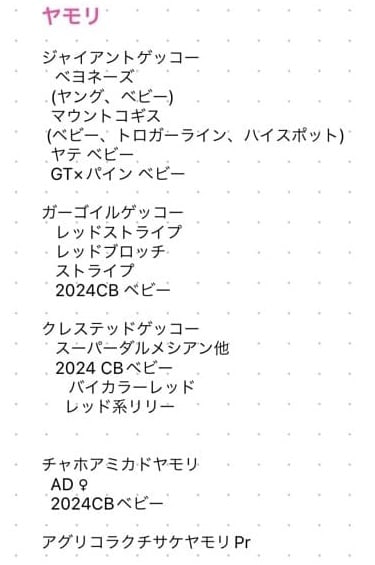 ヤモリ
ジャイアントゲッコー
ベヨネーズ
(ヤング、ベビー)
マウントコギス
(ベビー、トロガーライン、ハイスポット)
ヤテ ベビー
GT×パイン ベビー
ガーゴイルゲッコー
レッドストライプ
レッドブロッチ
ストライプ
2024CB ベビー
クレステッドゲッコー
スーパーダルメシアン他
2024 CBベビー
バイカラーレッド
レッド系リリー
チャホアミカドヤモリ
AD♀
2024CBベビー
アグリコラクチサケヤモリPr